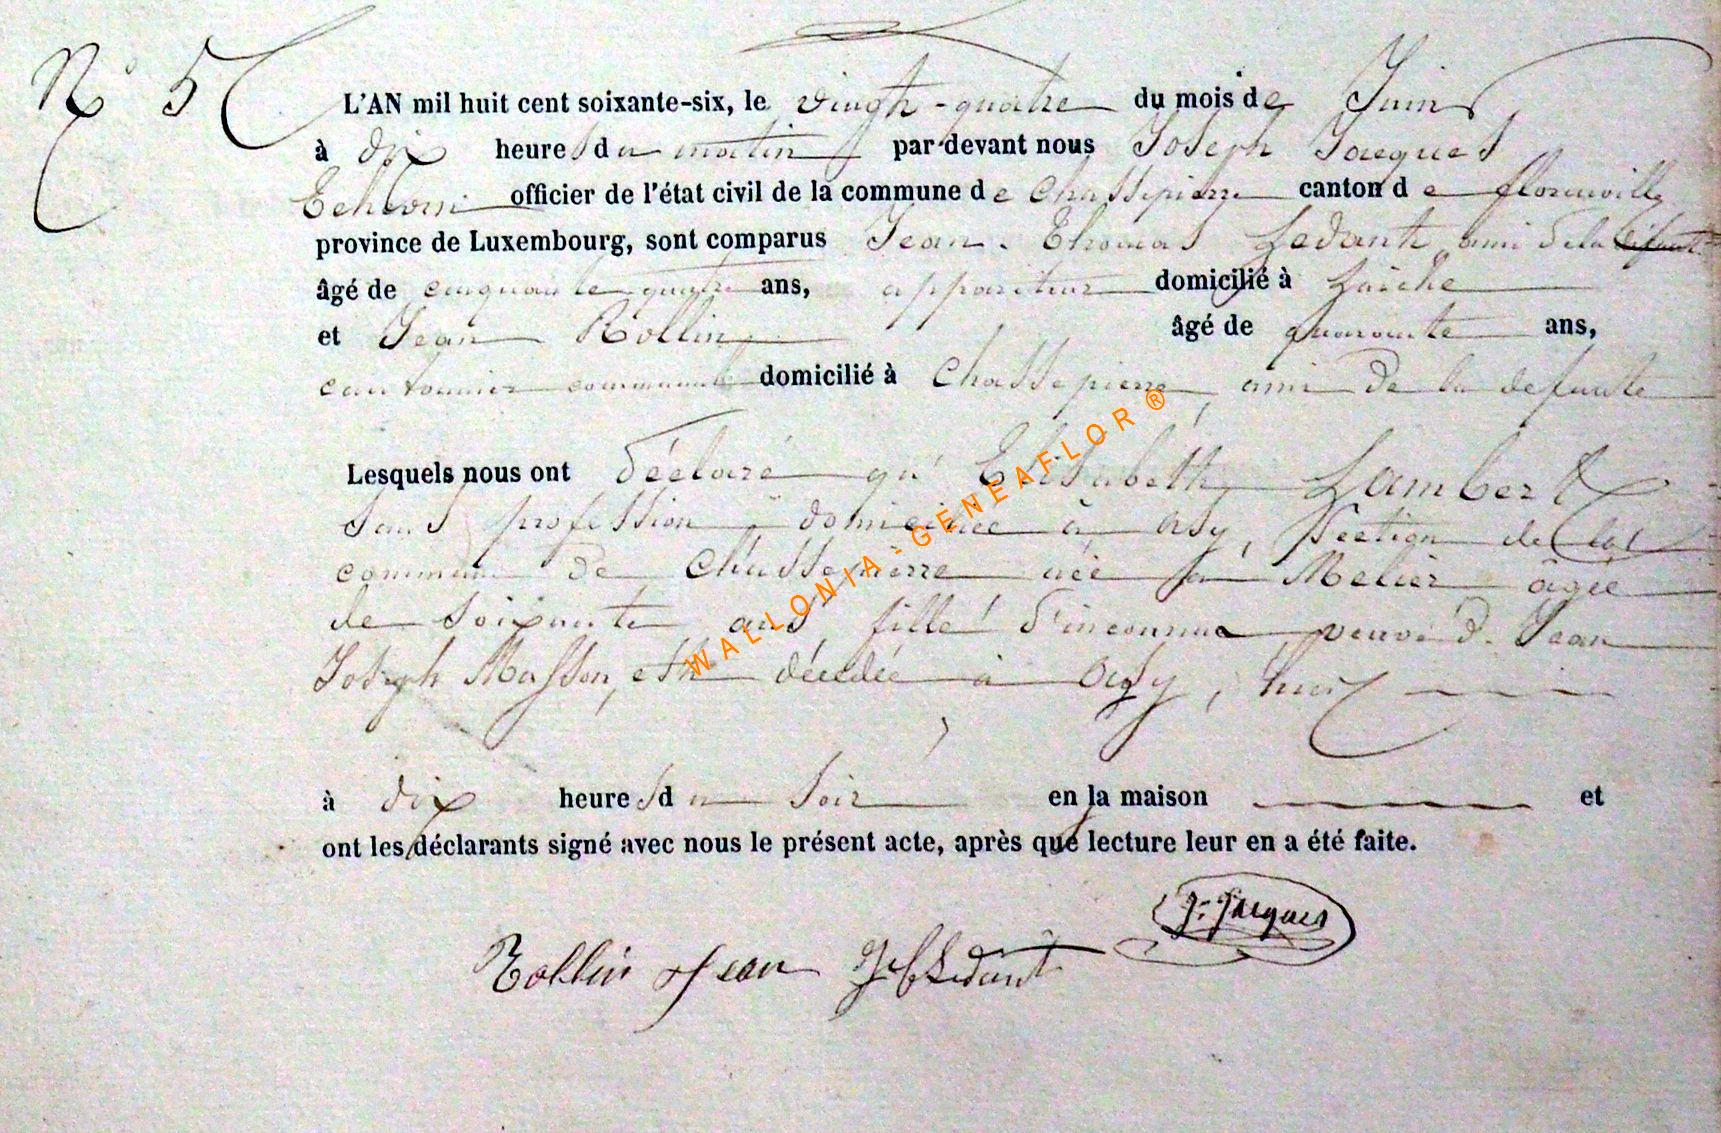 N° 5
L'AN mil huit cent soixante-six, le vingt-quatre du mois de Juin
à dix heures du matin par devant nous Joseph Jacques
Echevin officier de l'état civil de la commune de Chassepierre canton de florenville
province de Luxembourg, sont comparus Jean Thomas Ledant ami de la défunte
âgé de cinquante quatre ans, appariteur domicilié à Laiche
et Jean Rollin âgé de quarante ans,
cantonnier communal domicilié à Chassepierre, ami de la defunte
Lesquels nous ont déclaré qu'Elisabeth Lambert
sans profession domiciliée à Asy, section de
commune de Chassepierre née à Melier âgée
de soixante ans fille d'inconnue veuve d. Jean
Joseph Masson, est décédée à Asy, hier
à dix heures du soir en la maison et
ont les déclarants signé avec nous le présent acte, après que lecture leur en a été faite.
J. Jacques
Rollin Jean Ledant
WALLONIA - GENEAFLOR ®